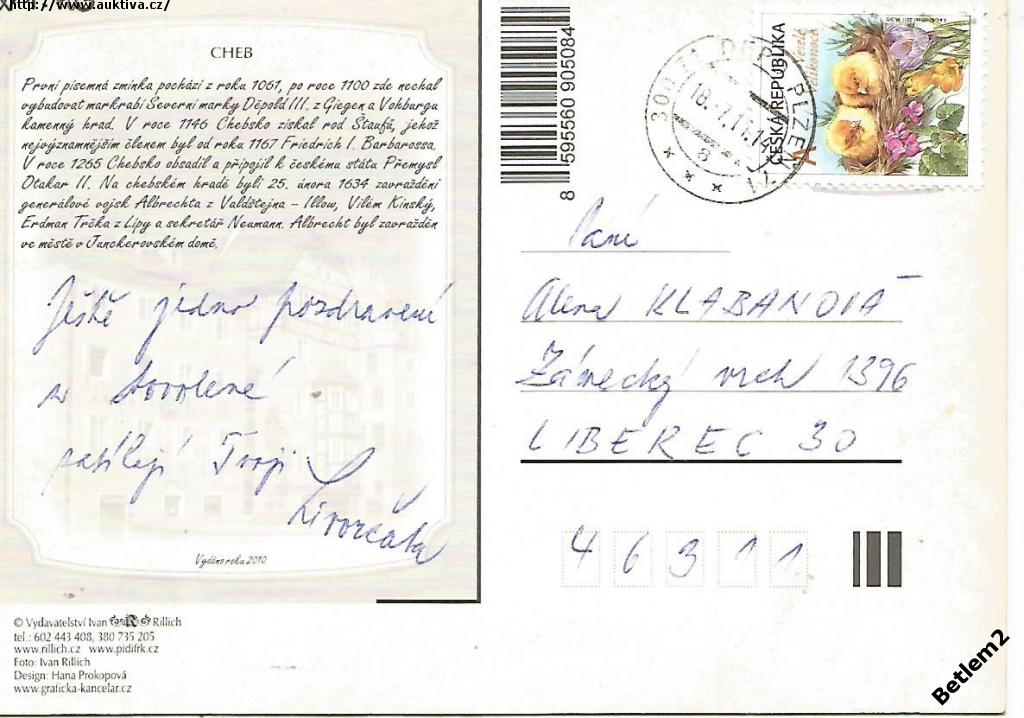 http://www.auktiva.cz/
CHEB
První písemná zmínka pochází z roku 1061, po roce 1100 zde nechal
vybudovat markrabí Severní marky Děpold III. z Giegen a Vohburgu
kamenný hrad. V roce 1146 Chebsko získal rod Štaufů, jehož
nejvýznamnějším členem byl od roku 1167 Friedrich I. Barbarossa.
V roce 1265 Chebsko obsadil a připojil k českému státu Přemysl
Otakar II. Na chebském hradě byli 25. února 1634 zavražděni
generálové vojsk Albrechta z Valdštejna - Illow, Vilém Kinský,
Erdman Trčka z Lípy a sekretář Neumann. Albrecht byl zavražděn
ve městě v Junckerovském domě.
Ještě jedno pozdravení
z dovolené
posílají Tvoji
Vydáno roku 2010
© Vydavatelství Ivan R Rillich
tel.: 602 443 408, 380 735 205
www.rillich.cz www.pidifrk.cz
Foto: Ivan Rillich
Design: Hana Prokopová
www.graficka-kancelar.cz
8 595560 905084
DEPO PLZEŇ 71
18.-7.11.14
8
ČESKÁ REPUBLIKA
A
Paní
Alena KLABANOVÁ
Zámecký vrch 1396
LIBEREC 30
46311
Betlem2